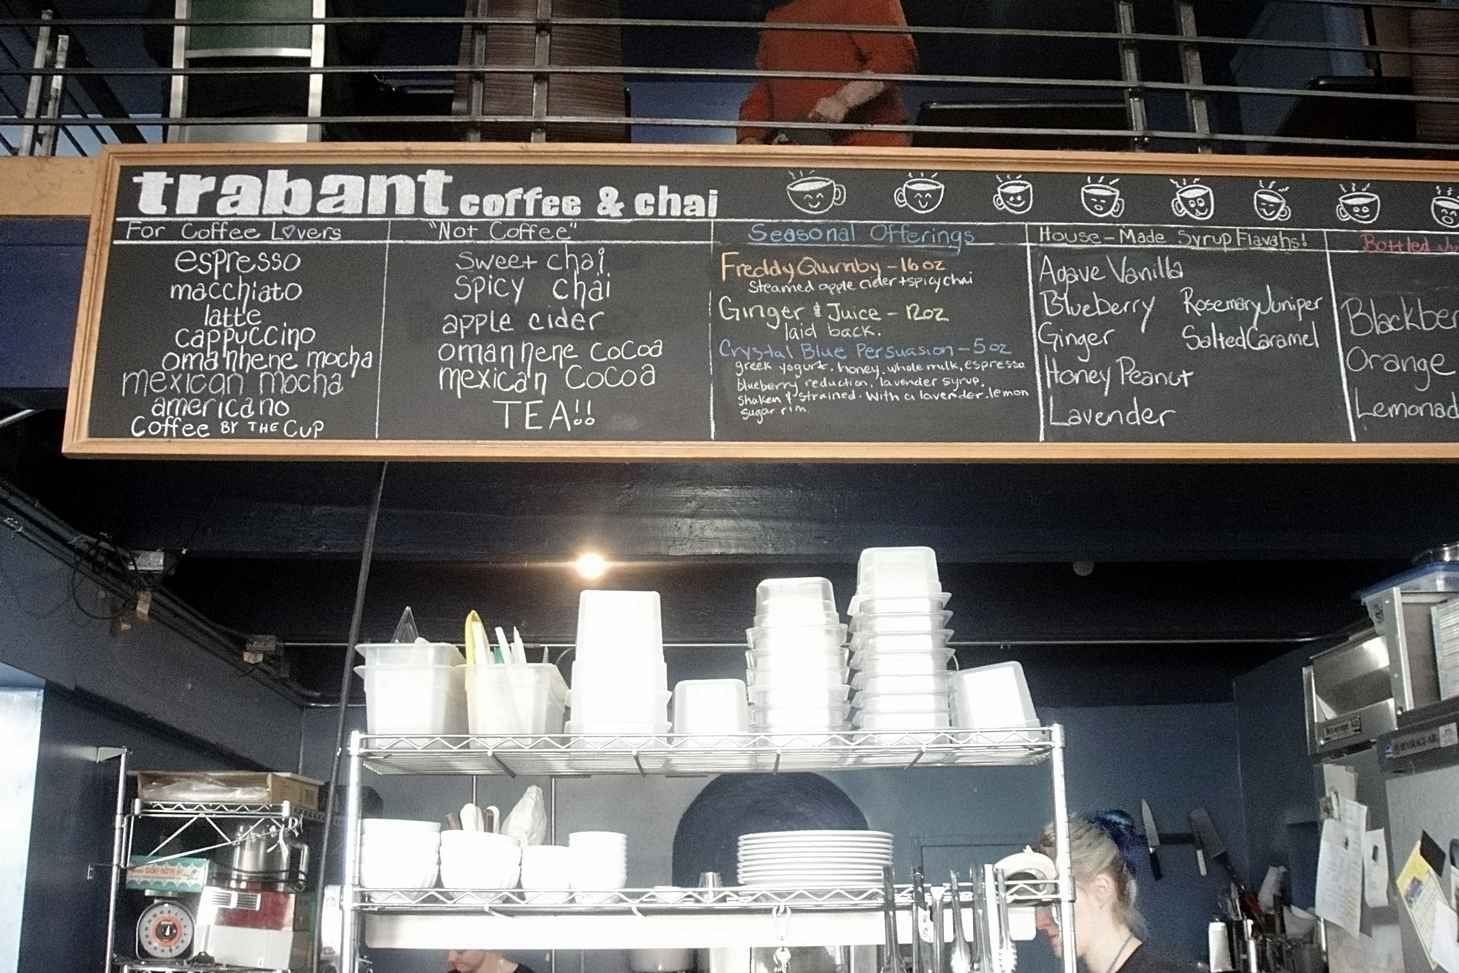 trabant coffee & chai
For Coffee Lovers
espresso
macchiato
latte
cappuccino
omanhene mocha
mexican mocha
americano
Coffee BY THE CUP
"Not Coffee"
sweet chai
spicy chai
apple cider
omanhene cocoa
mexican cocoa
TEA!!
Seasonal Offerings
Freddy Quimby - 16 oz
Steamed apple cider + spicy chai
Ginger & Juice - 12oz
laid back.
Crystal Blue Persuasion - 5 oz
greek yogurt, honey, whole milk, espresso
blueberry reduction, lavender syrup.
Shaken & strained. With a lavender.lemon
sugar rim.
House-Made Syrup Flavahs!
Agave Vanilla
Blueberry Rosemary Juniper
Ginger Salted Caramel
Honey Peanut
Lavender
Bottled Ju
Blackber
Orange
Lemonad